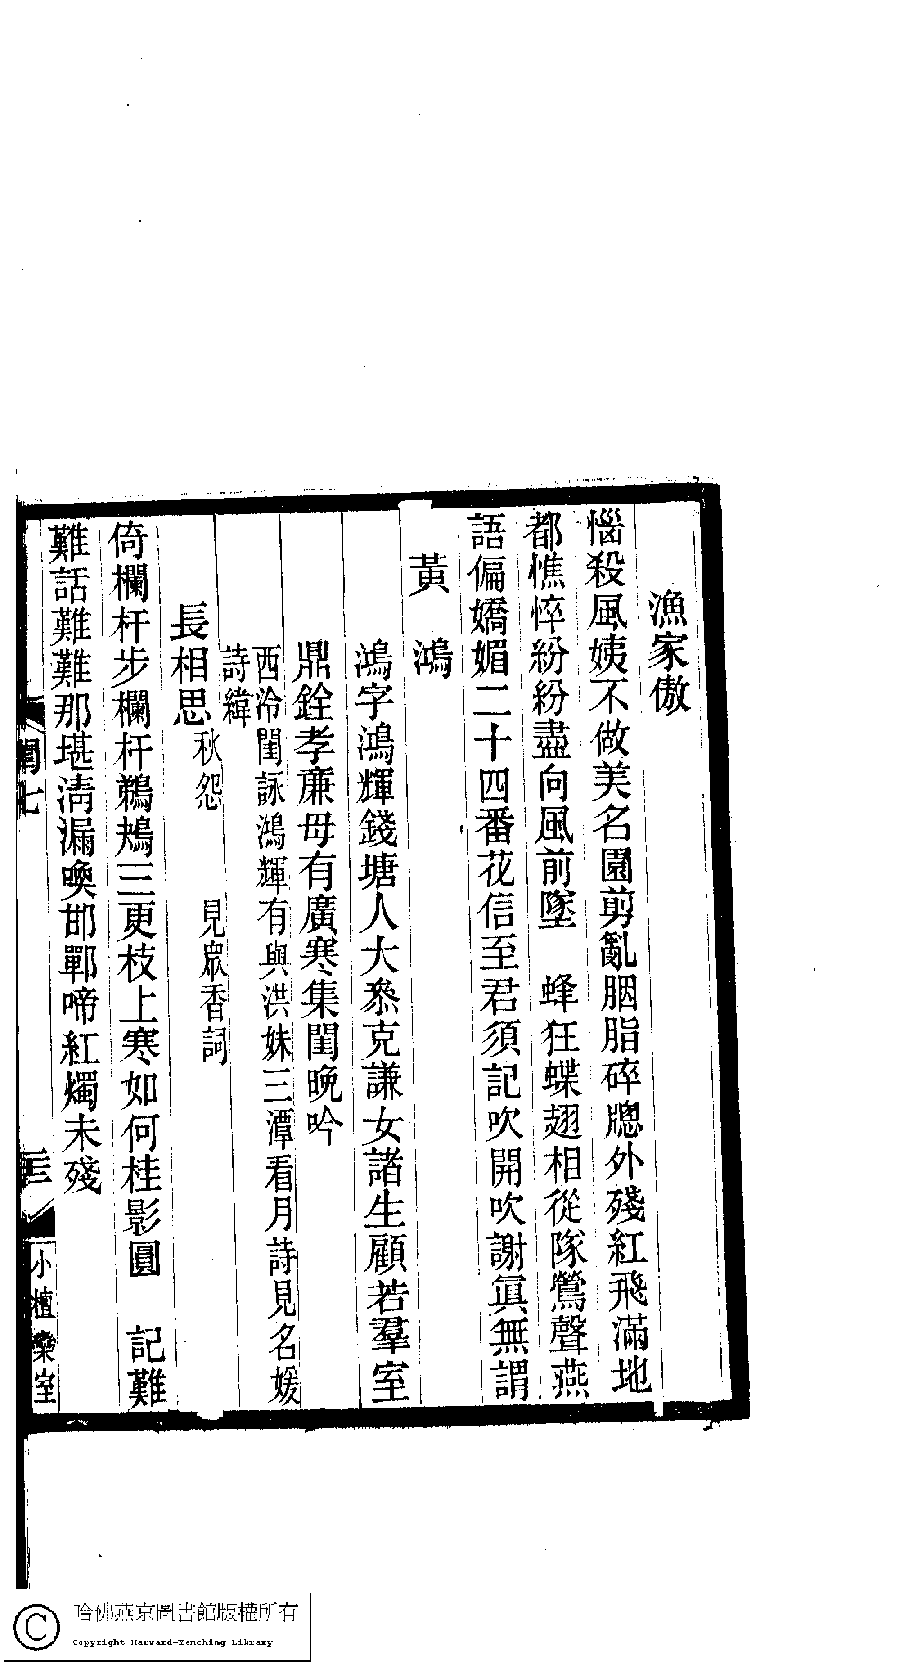 漁家傲
惱殺風姨不做美名園剪亂胭脂碎牕外殘紅飛滿地
都憔悴紛紛盡向風前墜　蜂狂蝶翅相從隊鶯聲燕
語偏嬌媚二十四番花信至君須記吹開吹謝眞無謂
黃　鴻
鴻字鴻輝錢塘人大叅克謙女諸生顧若羣室
鼎銓孝廉母有廣寒集閨晚吟
西泠閨詠鴻輝有與洪妹三潭看月詩見名媛
詩緯
長相思 秋怨　見眾香詞
倚欄杆步欄杆鵜鴂三更枝上寒如何桂影圓　記難
難話難難那堪淸漏喚邯鄲啼紅燭未殘
閨七
三
小檀欒室
哈佛燕京圖書館版權所有
Copyright Harvard-Yenching Library